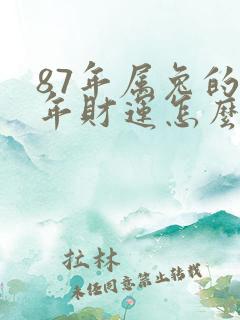 87年属兔的
年财运怎么
拉林
未经同意禁止转载